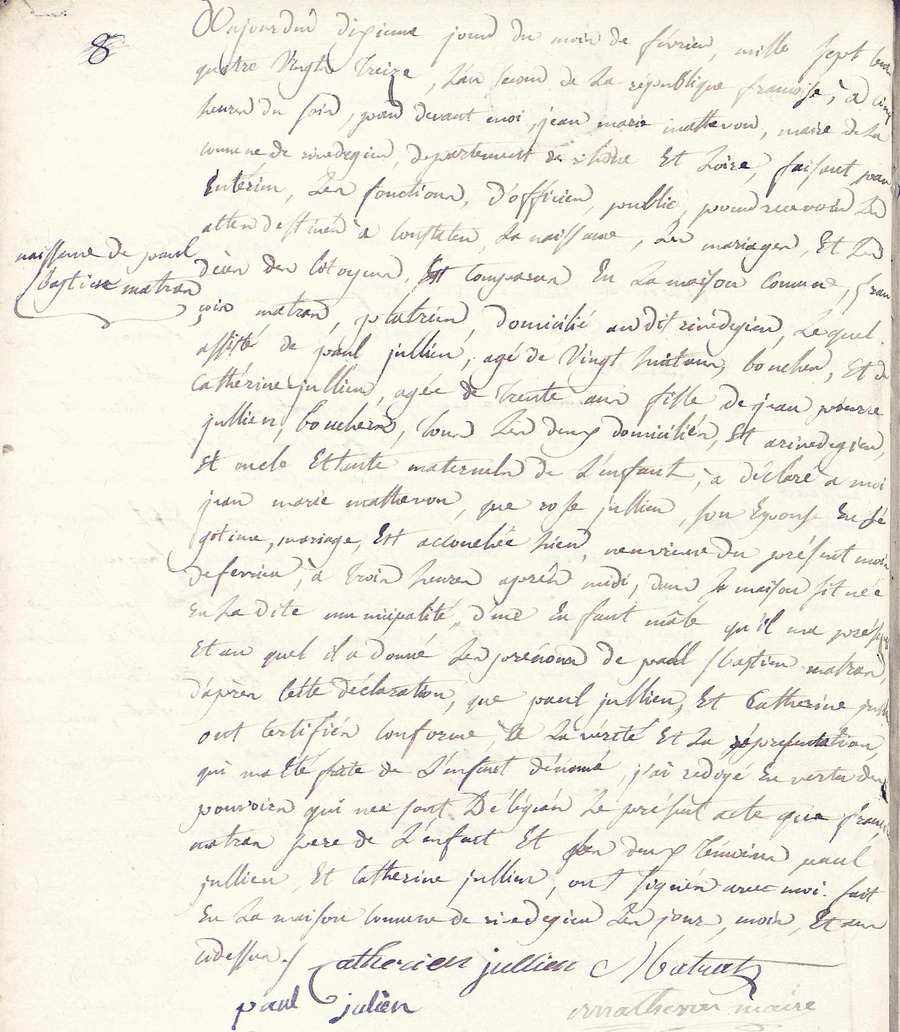 8
Aujourduî dixieme jour du mois de février, mille sept cent
quatre Vingts treize, L'an second de La republique francoise, a cinq
heures du soir, pard devant moi, jean marie mathevon, maire de La
comune de rivedegier, departement de rhône Et Loire, faisant par
interim, Les fonctions, D'officier, public, pour recevoir Les
actes destinés a constater La naissance, Les mariages, Et Les
naissance de paul
sbastien matran
décès des Citoyens, Est comparu En La maison Comune, fran
çois matran, platrier, domicilié audit rivedegier, Lequel
assisté de paul jullien, agé de Vingt huit ans, boucher, Et de
Cathérine jullien, agée de trente ans fille de jean pierre
jullien, boucher, tous Les deux domiciliés, Et a rivedegier,
Et oncle Et tante maternels de L'enfant, a déclaré a moi
jean marie mathevon, que rose jullien, son Epouse En lé
gitime, mariage, Est accouchée hier, neuvieme du présent mois
de fevrier, à trois heures après midi, dans sa maison située
En La dite municipalité, d'une Enfant mâle qu'il ma présenté
Et au quel il a donné Les prenoms de paul sbastien matran,
d'après Cette déclaration, que paul jullien, Et Catherine jullien
ont Certifiés conforme, a La vérité Et La répresentation,
qui ma Eté faite de L'enfant dénomé, j'ai redigé En vertu des
pouvoirs qui me sont Délégués Le présent acte que francois
matran pere de L'enfant Et Les deux témoins paul
jullien Et Catherine jullien, ont signés avec moi. fait
En La maison Comune de rivedegier Les jour, mois, Et an
cidessus./ Catherien jullien Matrat
paul julièn mathevon maire